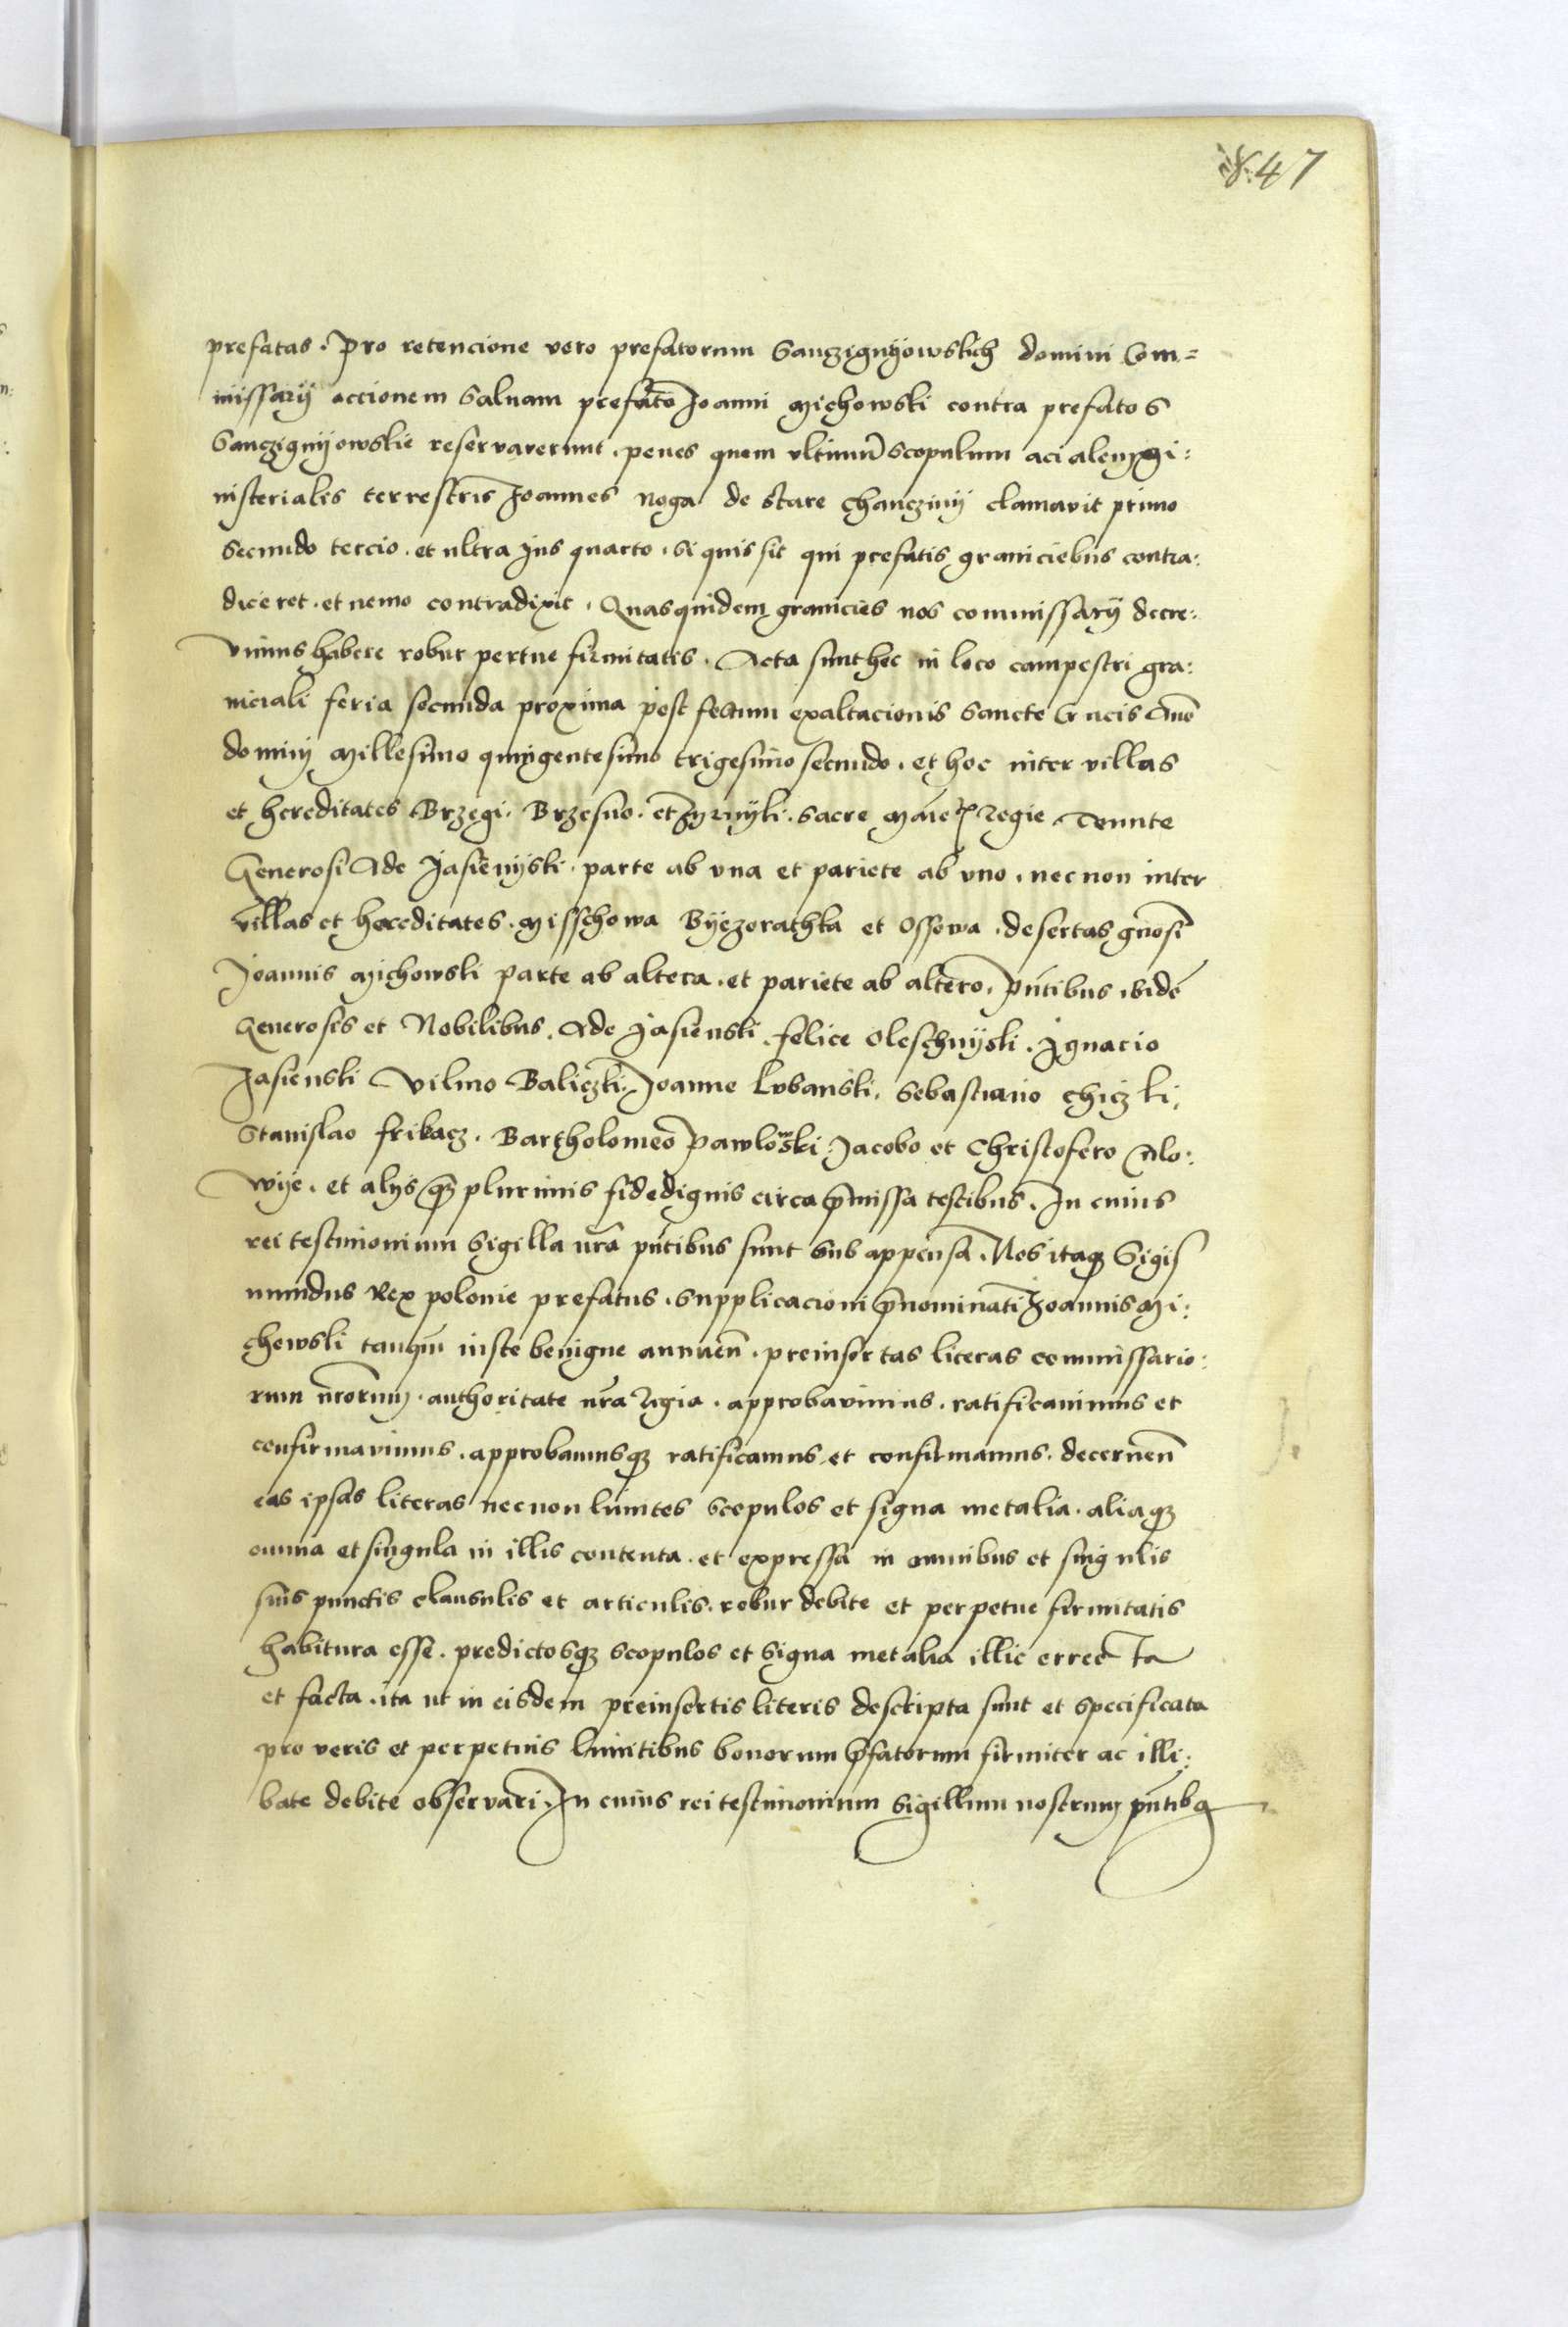 847
prefatas. Pro retencione vero prefatorum Sanczignyowskich domini Com=
missarij accionem salvam prefatō Joanni Michowski contra prefatos
Sanczignyowskie reservaverunt. penes quem ultimū scopulum acialem Mi:
nisterialis terrestris Joannes Noga de Stare Chancziny clamavit primo
secundo tercio. et ultra jus quarto. si quis sit qui prefatis graniciebus contra:
diceret. et nemo contradixit. Quasquidem granicies nos commissarij decre:
vimus habere robur pertue firmitatis. Acta sunt hec in loco campestri gra:
niciali feria secunda proxima post festum exaltacionis Sancte Crucis Anō
dominj Millesimo quingentesimo trigesimo secundo. et hoc inter villas
et hereditates Brzegi. Brzesno. et Mzynyki. Sacre Maīetꝭ Regie Tenute
Generosi Ade Jasienyski. parte ab una et pariete ab uno. necnon inter
villas et hereditates. Misschowa Byezorathka et Ossowa. desertas gnosi
Joannis Michowski parte ab altera. et pariete ab altero. pn̄tibus ibidē
Generosis et Nobilibus. Ade Jasienski. Felice Oleschnyski. Ignacio
Jasienski Vilmo Baliczki. Joanne Lubanski. Sebastiano Chiczki.
Stanislao Frikacz. Bartholomeo Pawlowski. Jacobo et Christofero Alo:
wije. et alijs qꝫ plurimis fidedignis circa p̄missa testibus. In cuius
rei testimonium Sigilla nrā pn̄tibus sunt subappensa. Nos itaqꝫ Sigis
mundus Rex Polonie prefatus. supplicacioni p̄nominati Joannis Mi:
chowski tanqm̄ iuste benigne annuen̄. preinsertas literas commissario:
rum nrōrum. authoritate nrā Regia. approbavimus. ratificavimus et
confirmavimus. approbamusqꝫ ratificamus et confirmamus. decernen̄
eas ipsas literas necnon limites scopulos et signa metalia. aliaqꝫ
omnia et singula in illis contenta. et expressa in omnibus et singulis
suis punctis clausulis et articulis. robur debite et perpetue firmitatis
habitura esse. predictosqꝫ scopulos et signa metalia illic errecta
et facta. ita ut in eisdem preinsertis literis descripta sunt et specificata
pro veris et perpetuis limitibus bonorum p̄fatorum firmiter ac illi:
bate debite observari. In cuius rei testimonium Sigillum nostrum pn̄tibꝫ